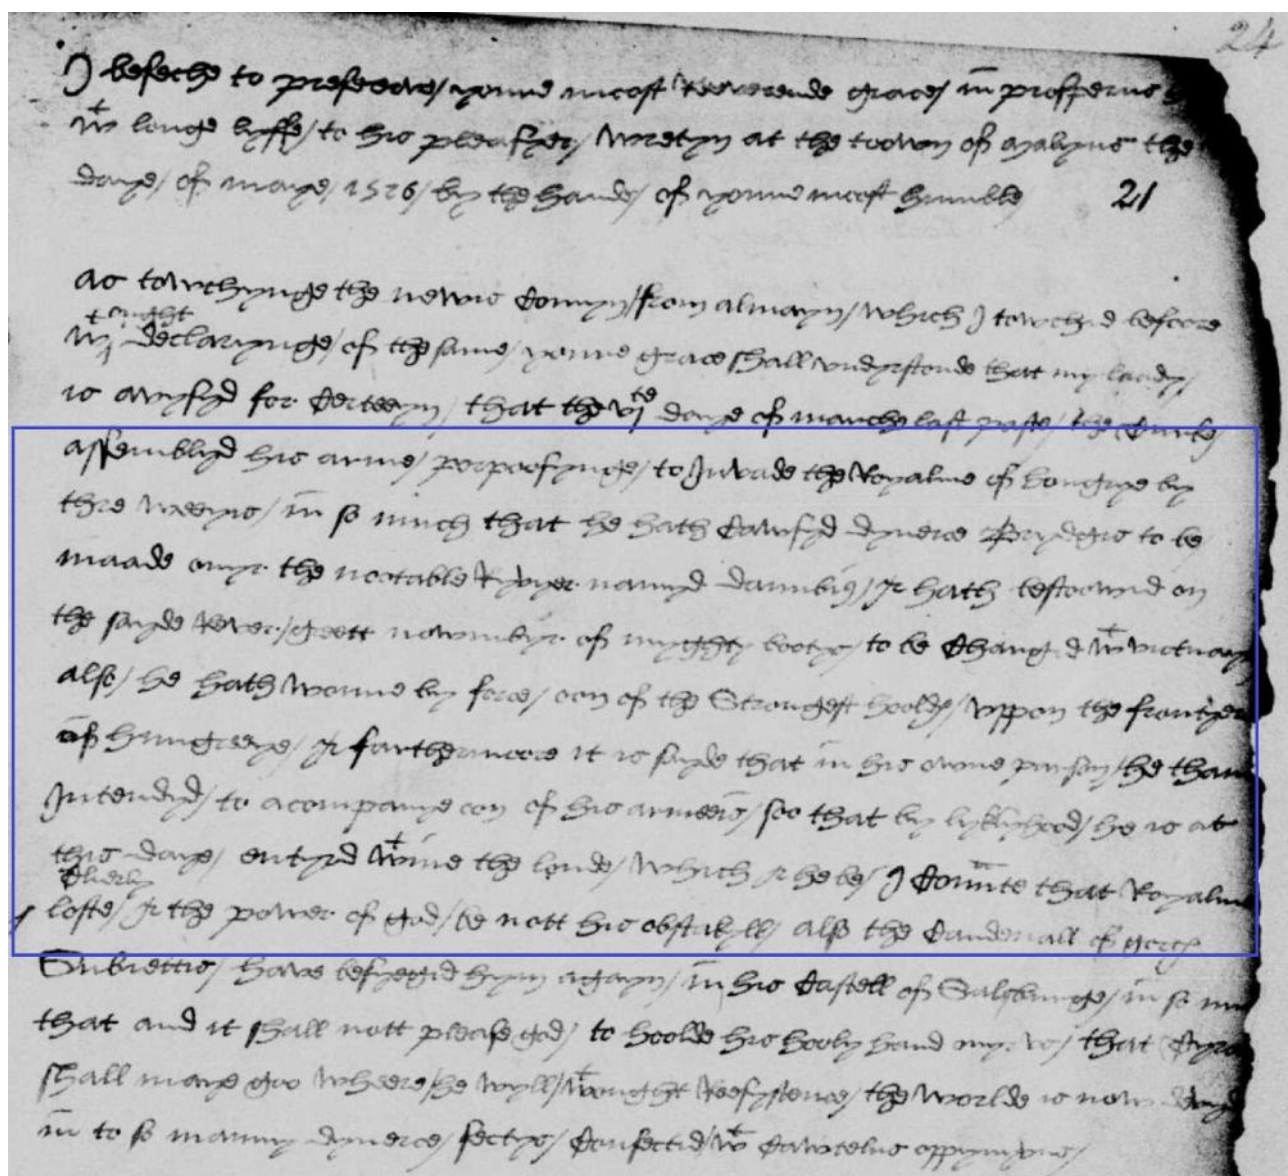 24
I beseche to preserve / youre moost Reverende grace / in prosperus
wt longe lyffe / to his pleasyer / wretyn at the toown of malynus the
daye / of maye / 1526 / by the hande / of youre moost humble
21
as towchynge the newis Comyn / from almayn / which I towchid before
wt ought declarynge / of the same / youre grace shall undyrstonde that my lady /
is avysyd for Certeyn / that the vj te daye of marche last paste / the Turke
assemblyd his arme / porpoosynge / to Invade the Royalme of hongrye by
thre weeyis / in so much that he hath Cawsyd dyverce Brydgis to be
maade ovyr the nootable Ryvyer namyd danubiꝯ / & hath bestoowid on
the sayde River / greett nowmbyr of myghty bootys / to be Charged wt victuay
also / he hath wonne by force / oon of the Strongest hoolds / uppon the frontyer
of hungreye / & farthermoore it is sayde that in his owne parson / he than
Intendyd / to acompanye oon of his armeeis / soo that by lyklyhood / he is at
this daye / entyrd wt ine the londe / which & he be / I Counte that Royalme
Clierly
loste / & the power of god / be nott his obstakyll / also the Cardenall of
Subiettis / have besyegid hym agayn / in his Castell of Salsburge / in so mu
that and it shall nott please god / to hoolde his hooly hand ovyr us / that Tyra
shall maye goo wheere / he wyll / wt ought Reesystence / the worlde is now
in to so manny dyverce / sectys / Confectid / wt Cawtelus oppynyons /